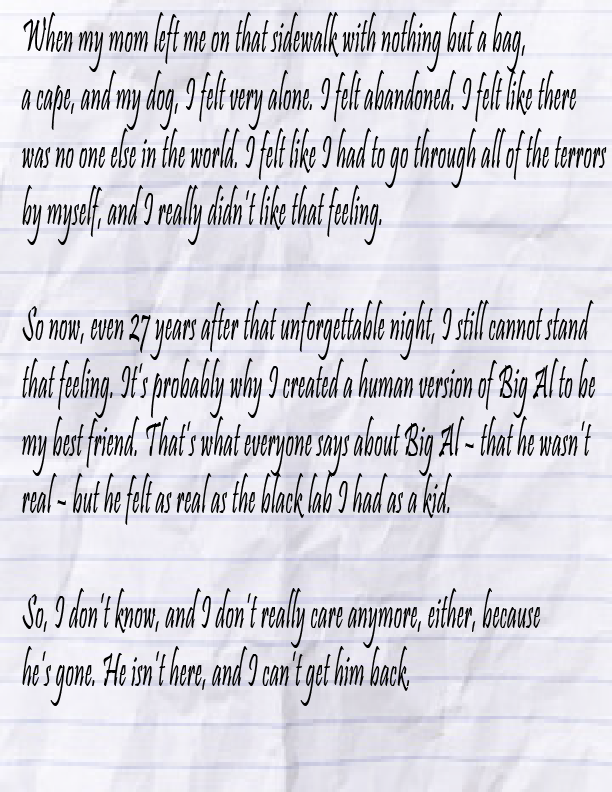 When my mom left me on that sidewalk with nothing but a bag,
a cape, and my dog, I felt very alone. I felt abandoned. I felt like there
was no one else in the world. I felt like I had to go through all of the terrors
by myself, and I really didn't like that feeling.
So now, even 27 years after that unforgettable night, I still cannot stand
that feeling. It's probably why I created a human version of Big Al to be
my best friend. That's what everyone says about Big Al ~ that he wasn't
real ~ but he felt as real as the black lab I had as a kid.
So, I don't know, and I don't really care anymore, either, because
he's gone. He isn't here, and I can't get him back.